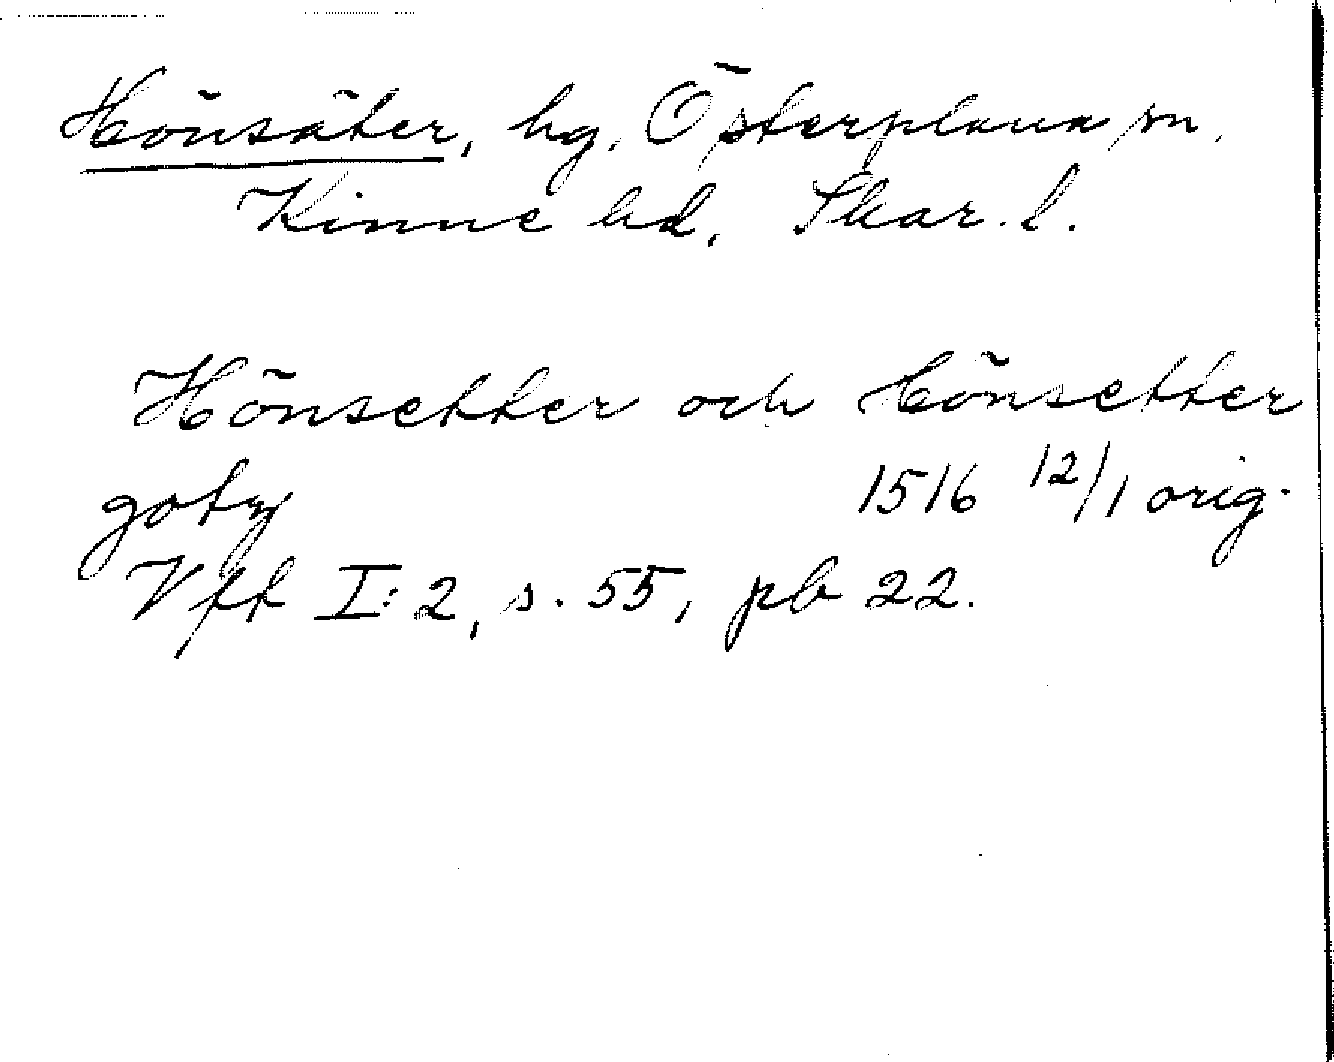 Hönsäter, hg. Österplana sn.
Kinne hd, Skar. l.
Hönsetter och hönsetter
gotz 1516 12/1 orig.
Vff I:2, s. 55, pb 22.